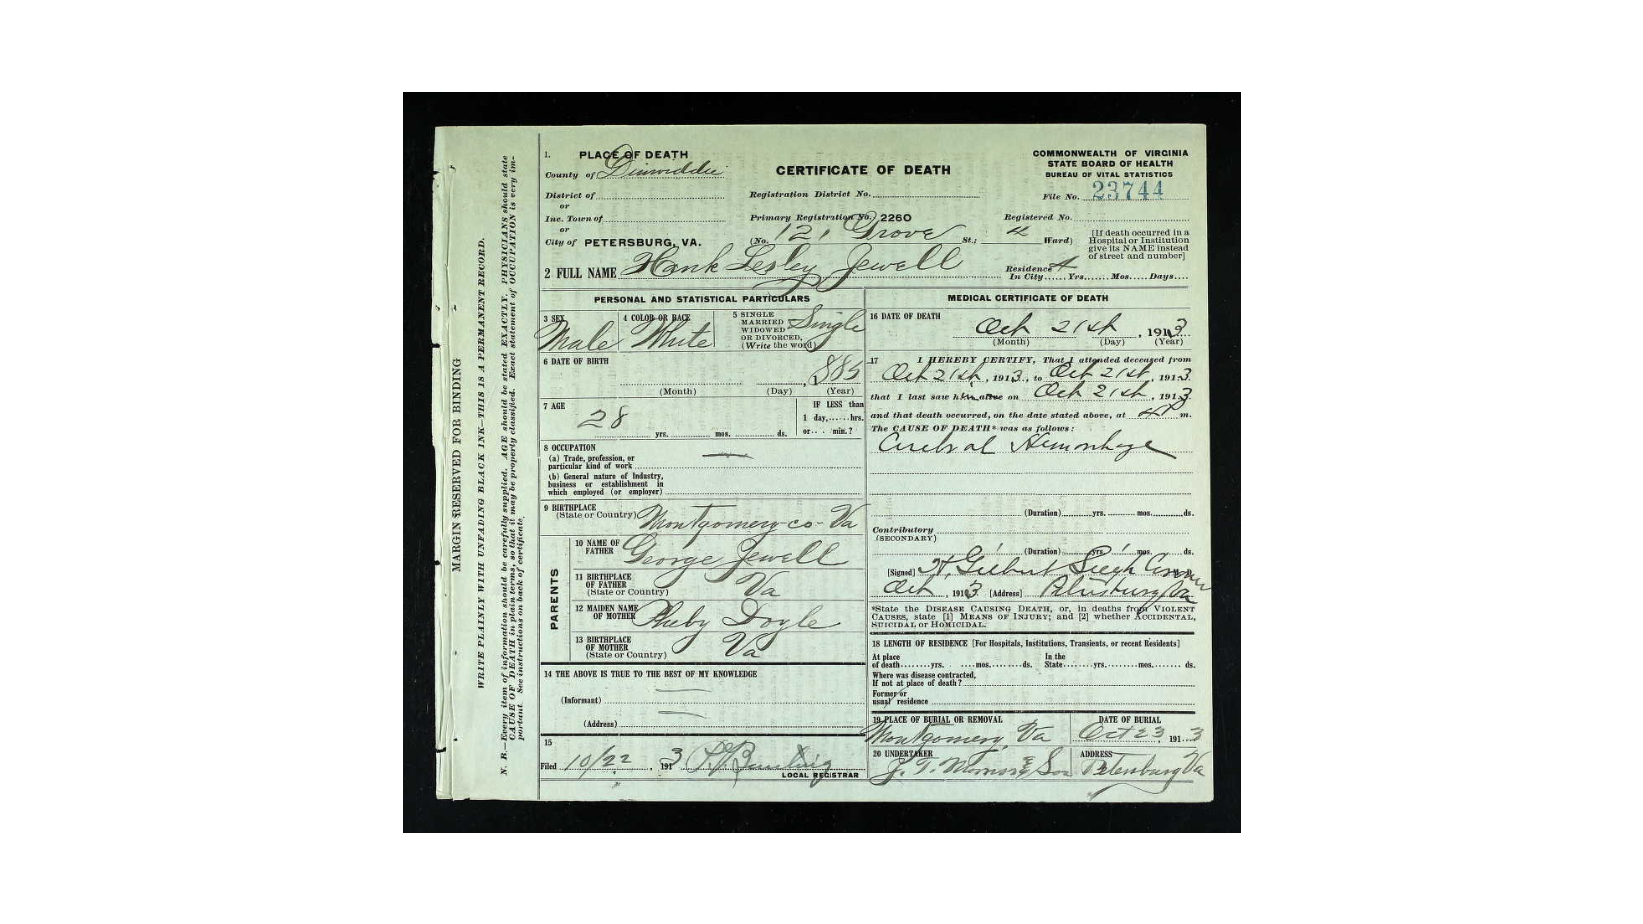 MARGIN RESERVED FOR BINDING
WRITE PLAINLY WITH UNFADING BLACK INK—THIS IS A PERMANENT RECORD.
N. B.—Every item of information should be carefully supplied. AGE should be stated EXACTLY. PHYSICIANS should state
CAUSE OF DEATH in plain terms, so that it may be properly classified. Exact statement of OCCUPATION is very im-
portant. See instructions on back of certificate.
1. PLACE OF DEATH
County of Dinwiddie
District of
or
Inc. Town of
or
City of PETERSBURG, VA.
CERTIFICATE OF DEATH
Registration District No.
Primary Registration No. 2260
(No. 121 Grove St.; 4 Ward)
COMMONWEALTH OF VIRGINIA
STATE BOARD OF HEALTH
BUREAU OF VITAL STATISTICS
File No. 23744
Registered No.
[If death occurred in a
Hospital or Institution
give its NAME instead
of street and number]
2 FULL NAME Hank Lesley Jewell
Residence
In City Yrs. Mos. Days
PERSONAL AND STATISTICAL PARTICULARS
3 SEX Male
4 COLOR OR RACE White
5 SINGLE
MARRIED
WIDOWED
OR DIVORCED,
(Write the word) Single
6 DATE OF BIRTH
885
(Month) (Day) (Year)
7 AGE
28
yrs. mos. ds.
IF LESS than
1 day, hrs.
or min.?
8 OCCUPATION
(a) Trade, profession, or
particular kind of work
(b) General nature of Industry,
business or establishment in
which employed (or employer)
9 BIRTHPLACE
(State or Country) Montgomery co - Va
PARENTS
10 NAME OF
FATHER George Jewell
11 BIRTHPLACE
OF FATHER
(State or Country) Va
12 MAIDEN NAME
OF MOTHER Pheby Doyle
13 BIRTHPLACE
OF MOTHER
(State or Country) Va
14 THE ABOVE IS TRUE TO THE BEST OF MY KNOWLEDGE
(Informant)
(Address)
15
Filed 10/22, 1913
LOCAL REGISTRAR
MEDICAL CERTIFICATE OF DEATH
16 DATE OF DEATH
Oct 21st, 1913
(Month) (Day) (Year)
17 I HEREBY CERTIFY, That I attended deceased from
Oct 21st, 1913, to Oct 21st, 1913
that I last saw him alive on Oct 21st, 1913
and that death occurred, on the date stated above, at m.
The CAUSE OF DEATH* was as follows:
Cerebral Hemorrhage
(Duration) yrs. mos. ds.
Contributory
(SECONDARY)
(Duration) yrs. mos. ds.
[Signed] H. Gilbert Leigh Coroner
Oct, 1913 [Address] Petersburg Va
*State the DISEASE CAUSING DEATH, or, in deaths from VIOLENT
CAUSES, state [1] MEANS OF INJURY; and [2] whether ACCIDENTAL,
SUICIDAL or HOMICIDAL.
18 LENGTH OF RESIDENCE [For Hospitals, Institutions, Transients, or recent Residents]
At place In the
of death yrs. mos. ds. State yrs. mos. ds.
Where was disease contracted,
If not at place of death?
Former or
usual residence
19 PLACE OF BURIAL OR REMOVAL
Montgomery, Va
DATE OF BURIAL
Oct 23, 1913
20 UNDERTAKER
J. T. & Son
ADDRESS
Petersburg Va